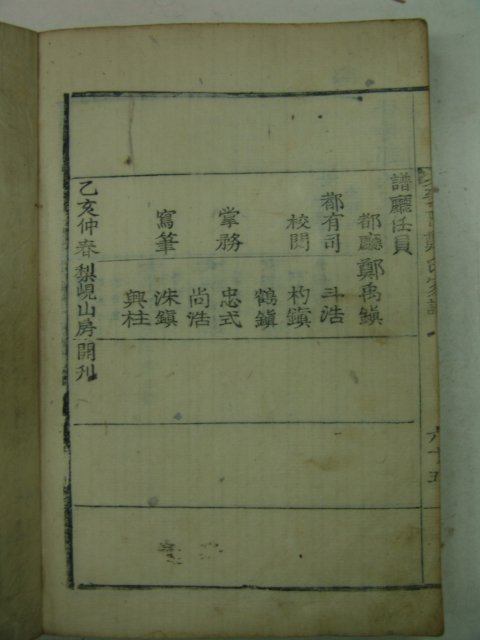 譜廳任員
都廳 鄭禹鎭
都有司 斗浩
校閱 杓鎭
鶴鎭
掌務 忠式
尙浩
寫筆 洙鎭
興柱
乙亥仲春梨峴山房開刋
六十五